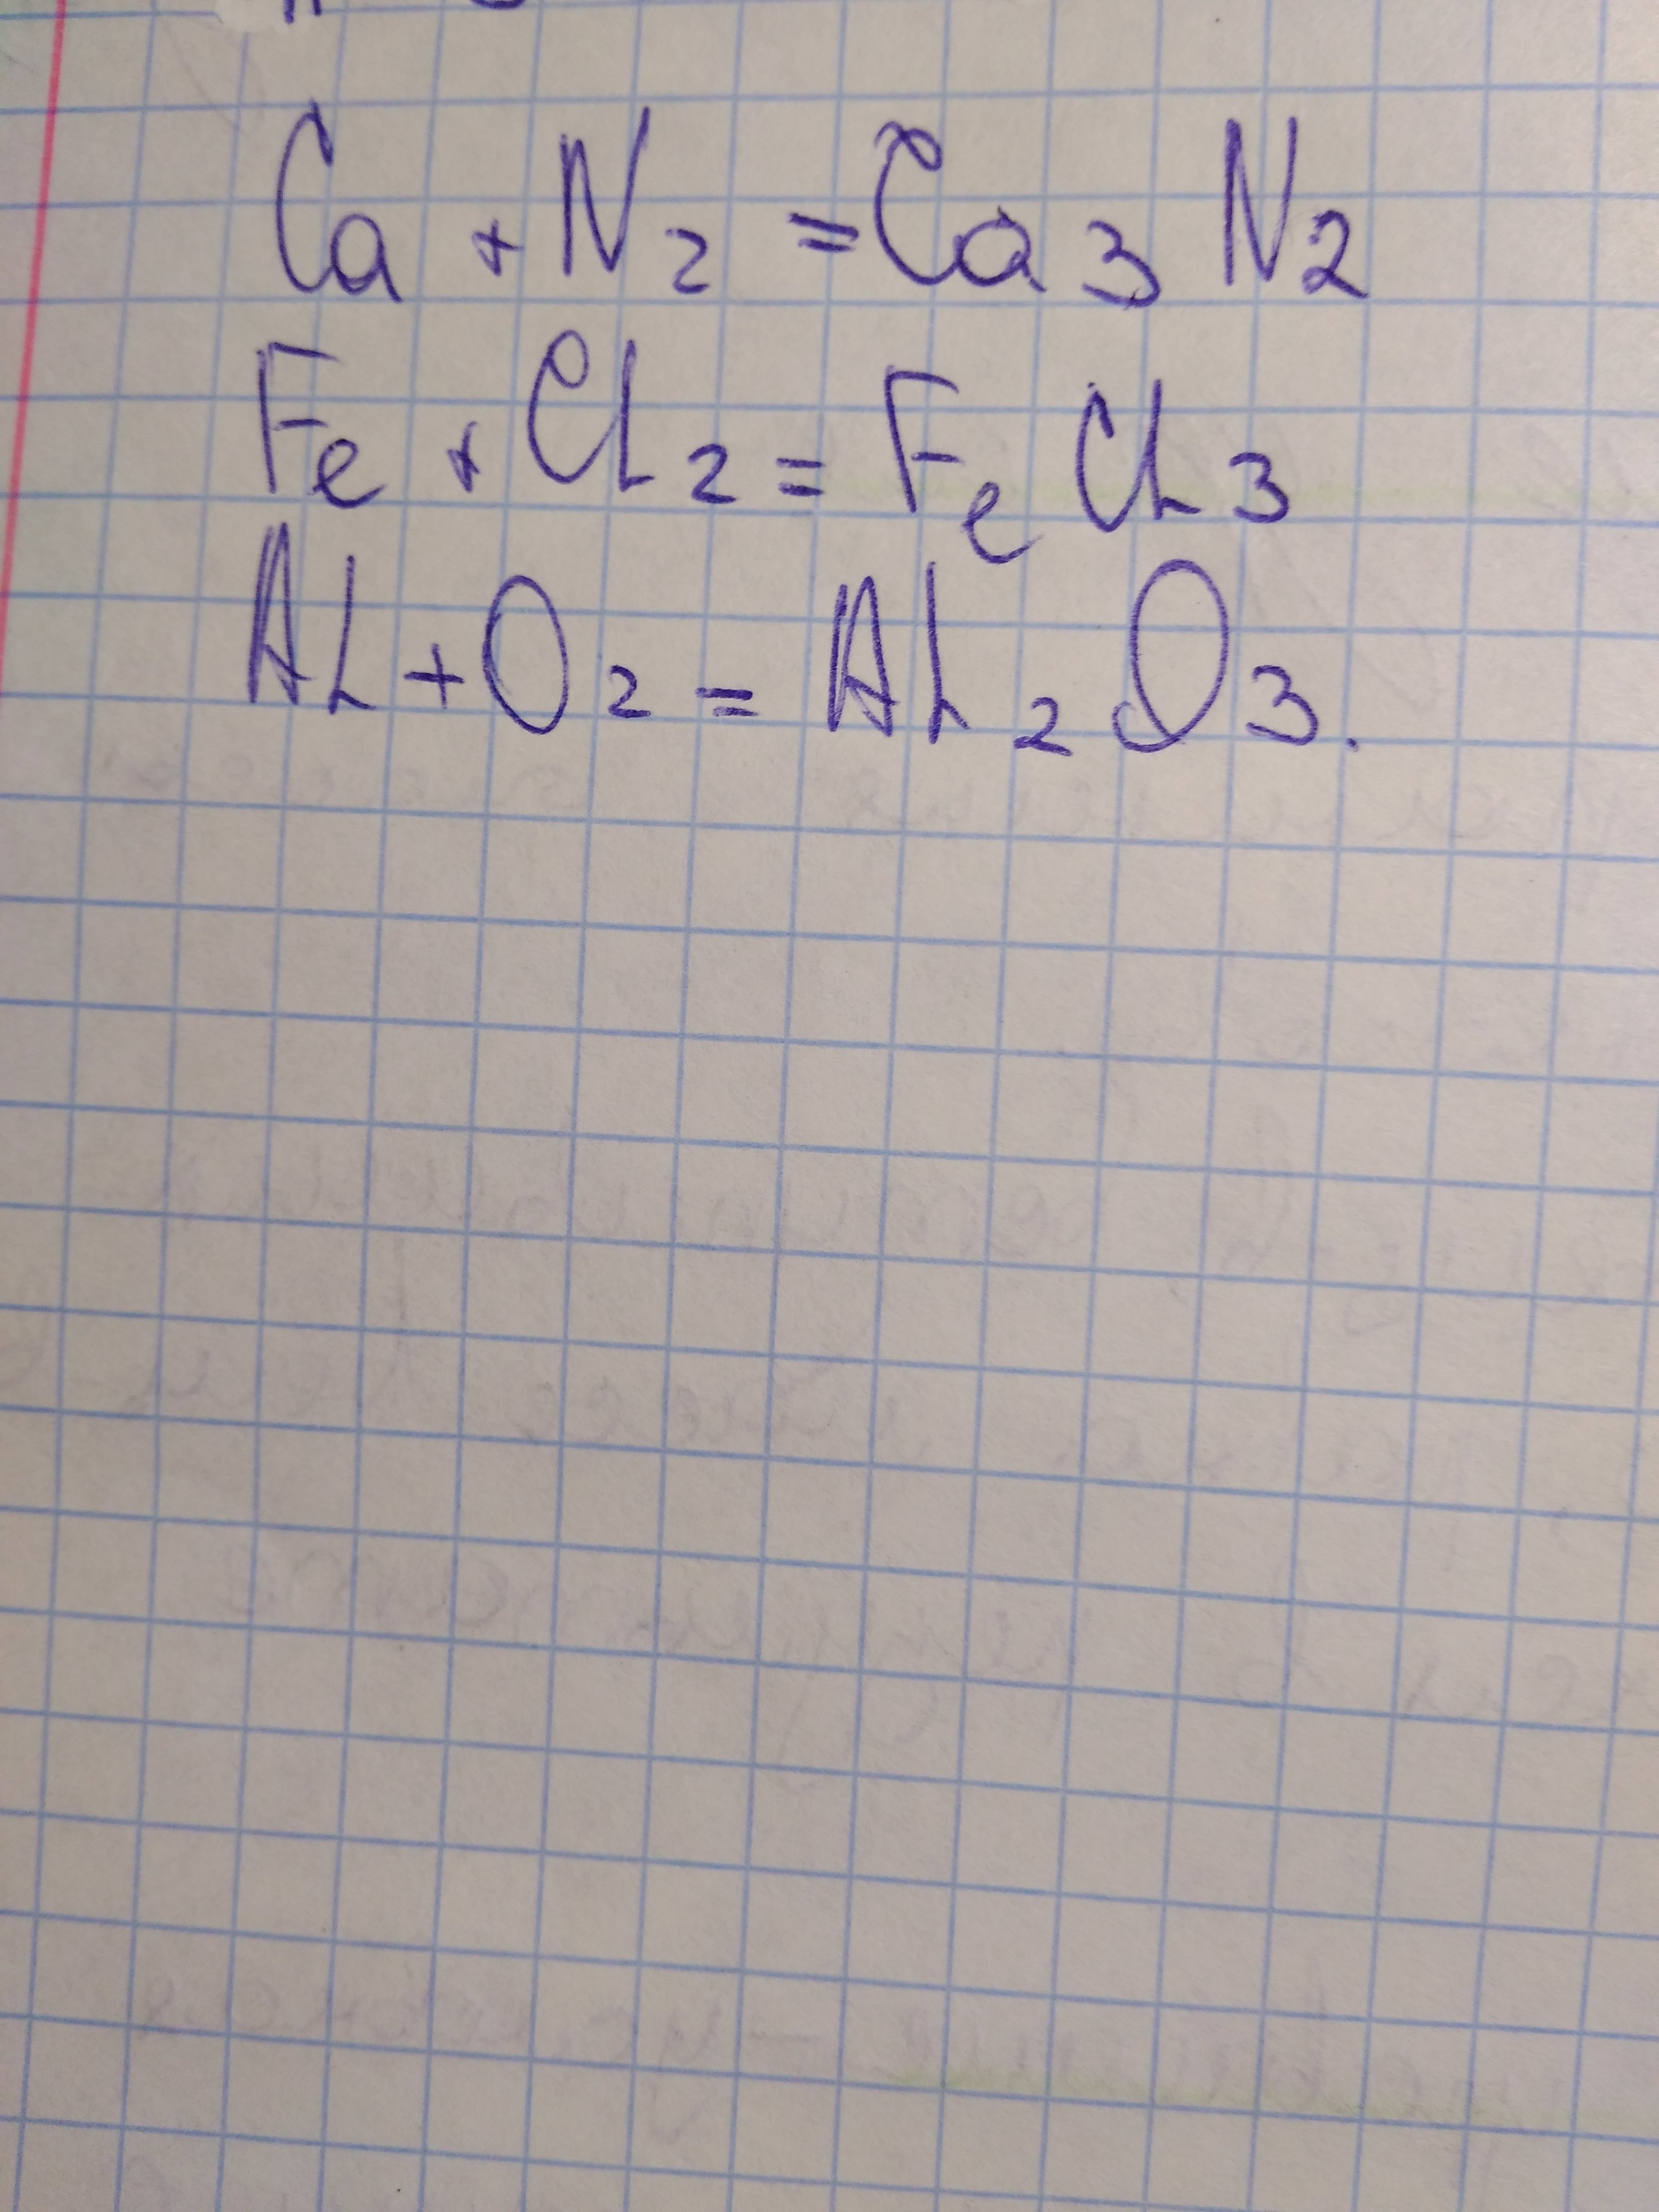 Ca + N2 = Ca3N2
Fe + Cl2 = FeCl3
Al + O2 = Al2O3.